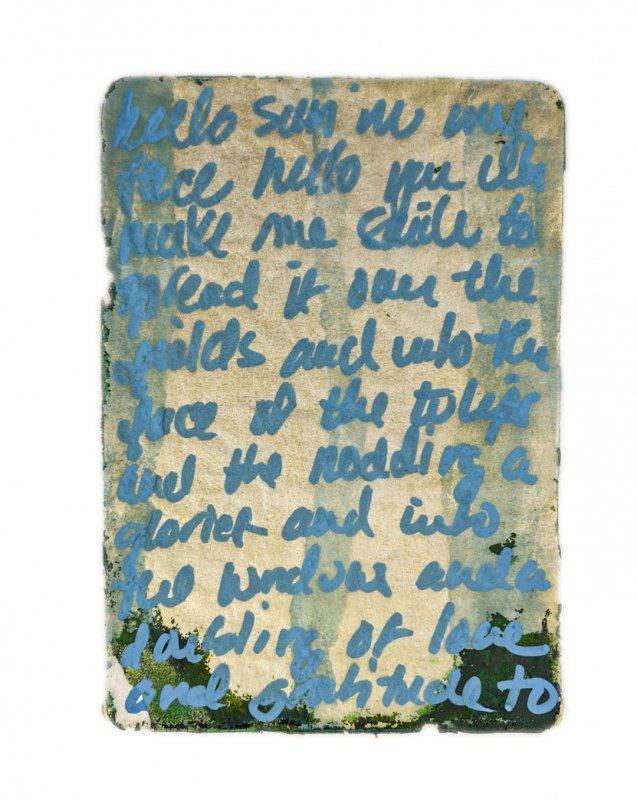 hello sun in my
face hello you who
make me smile to
spread it over the
fields and into the
face of the tulips
and the nodding a
glories and into
the windows and a
of love
and gratitude to